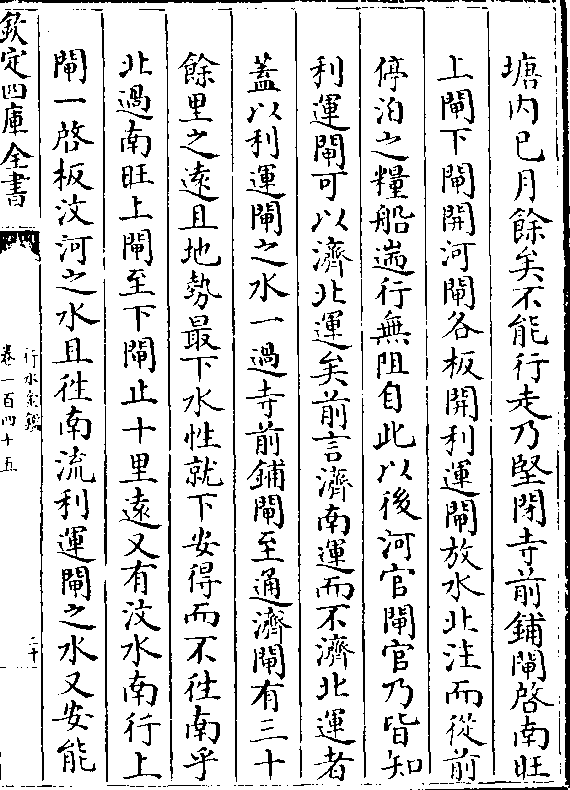 塘内已月餘矣不能行走乃堅閉寺前鋪閘啓南旺
上閘下閘開河閘各板開利運閘放水北注而從前
停泊之糧船遄行無阻自此以後河官閘官乃皆知
利運閘可以濟北運矣前言濟南運而不濟北運者
蓋以利運閘之水一過寺前鋪閘至通濟閘有三十
餘里之遠且地勢最下水性就下安得而不徃南乎
北過南旺上閘至下閘止十里遠又有汶水南行上
閘一啓板汶河之水且徃南流利運閘之水又安能
欽定四庫全書
行水金鑑
卷一百四十五
二十